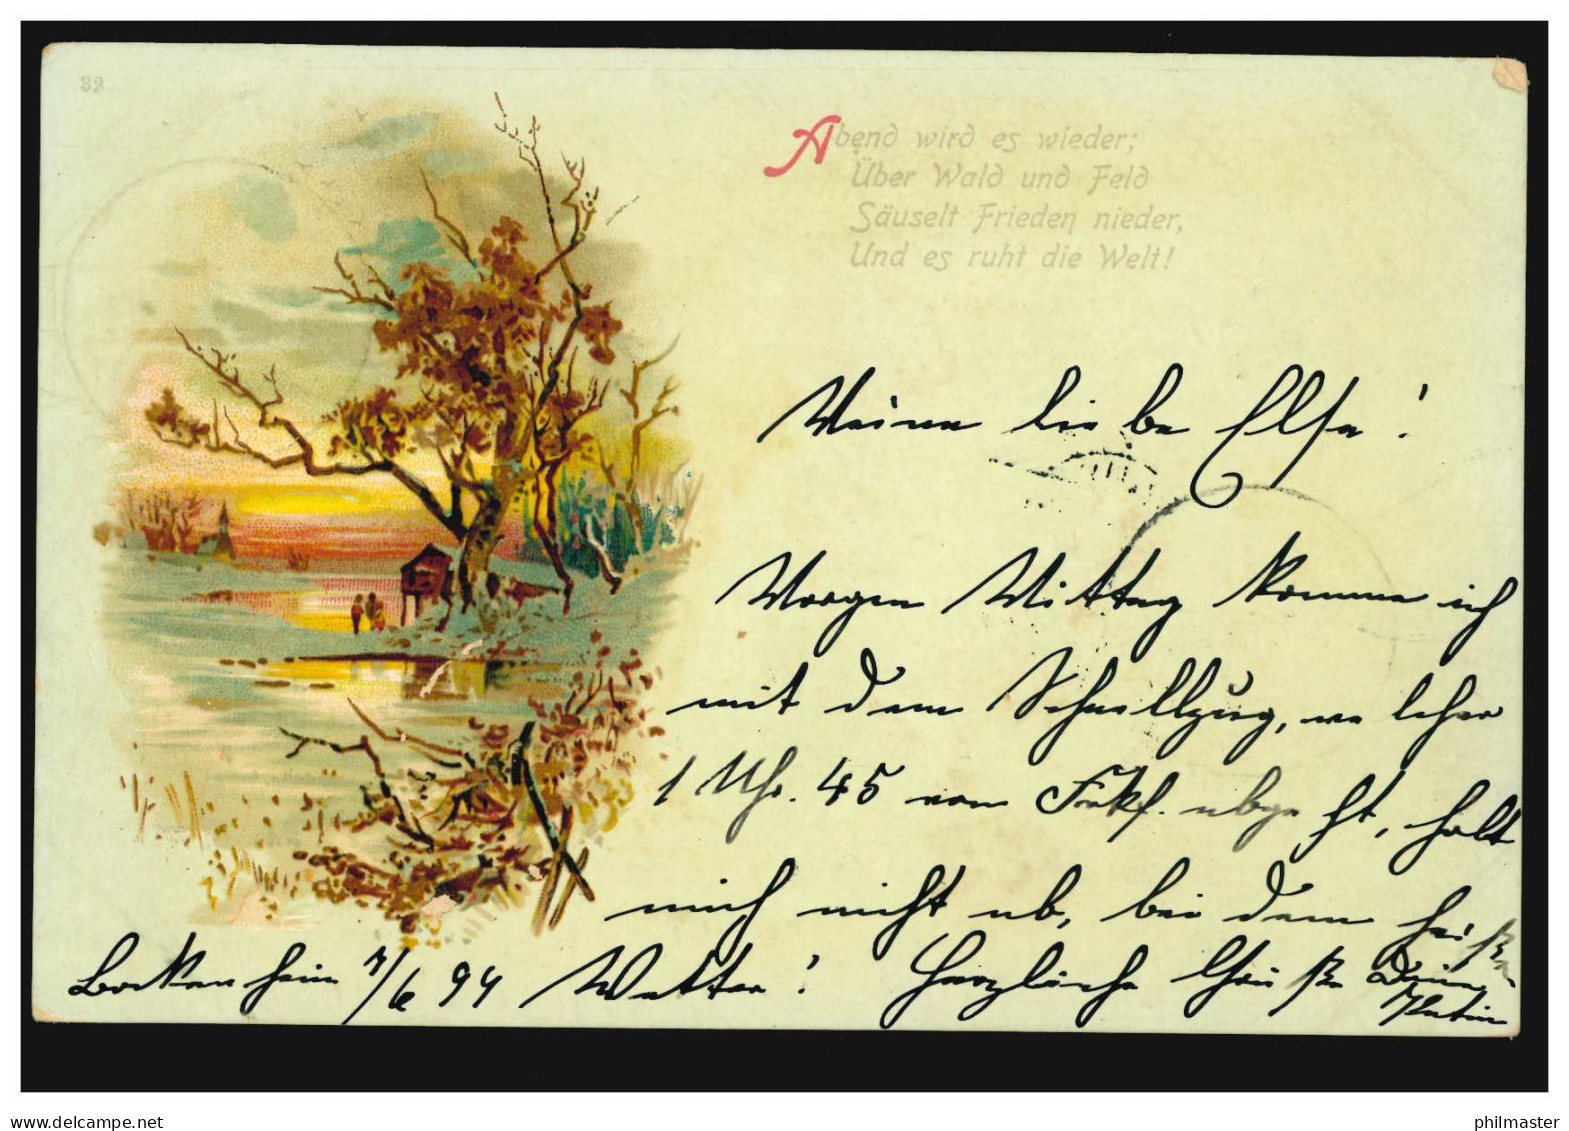 32
Abend wird es wieder;
Über Wald und Feld
Säuselt Frieden nieder,
Und es ruht die Welt!
Meine liebe Elsa!
Morgen Mittag komme ich
mit dem Schnellzug, welcher
1 Uhr. 45 von Frkf. abgeht, holt
mich nicht ab, bei dem heißen
Bockenheim 7/6 94 Wetter! Herzliche Grüße Deine
delcampe.net
philmaster